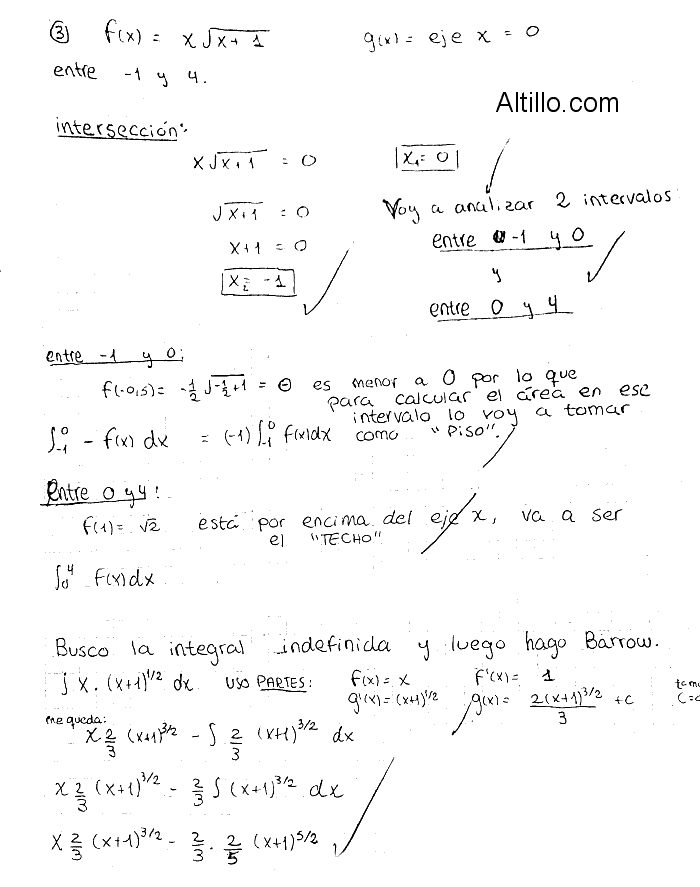 ③ f(x) = x√(x+1)    g(x) = eje x = 0
entre -1 y 4.
Altillo.com
intersección:
x√(x+1) = 0    |x₁ = 0|
√(x+1) = 0
x+1 = 0
x₂ = -1
Voy a analizar 2 intervalos
entre -1 y 0
y
entre 0 y 4
entre -1 y 0:
f(-0,5) = -1/2 √(-1/2+1) = ⊖ es menor a 0 por lo que
para calcular el área en ese
intervalo lo voy a tomar
∫₋₁⁰ - f(x) dx = (-1) ∫₋₁⁰ f(x)dx como "PISO".
Entre 0 y 4:
f(1) = √2 está por encima del eje x, va a ser
el "TECHO"
∫₀⁴ f(x)dx
Busco la integral indefinida y luego hago Barrow.
∫ x. (x+1)^1/2 dx USO PARTES: f(x) = x    f'(x) = 1
g'(x) = (x+1)^1/2    g(x) = 2(x+1)^3/2 / 3 + c
me queda:
x 2/3 (x+1)^3/2 - ∫ 2/3 (x+1)^3/2 dx
x 2/3 (x+1)^3/2 - 2/3 ∫ (x+1)^3/2 dx
x 2/3 (x+1)^3/2 - 2/3 . 2/5 (x+1)^5/2